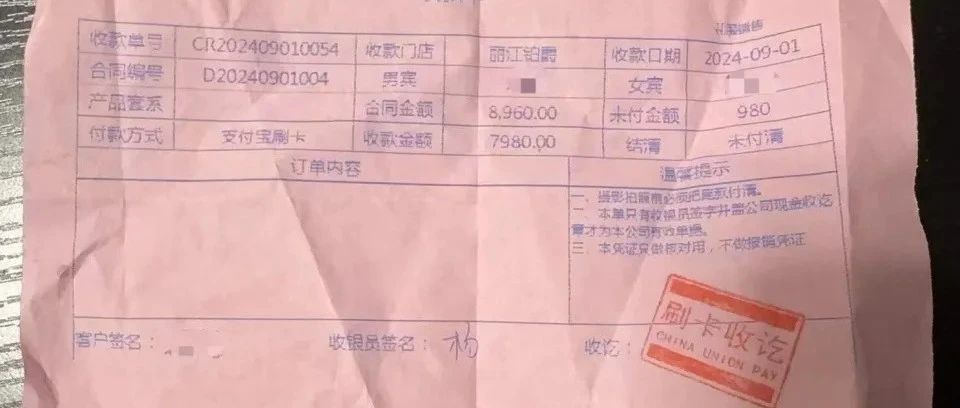 收款单号 CR202409010054 收款门店 丽江铂爵 收款日期 2024-09-01
合同编号 D20240901004 男宾 女宾
产品套系 合同金额 8,960.00 未付金额 980
付款方式 支付宝刷卡 收款金额 7980.00 结清 未付清
订单内容 温馨提示
一、摄影拍照前必须把尾款付清。
二、本单只有收银员签字并盖公司现金收讫
章才为本公司有效单据。
三、本凭证只做核对用，不做报销凭证
客户签名： 收银员签名： 杨 收讫：
刷卡收讫
CHINA UNION PAY